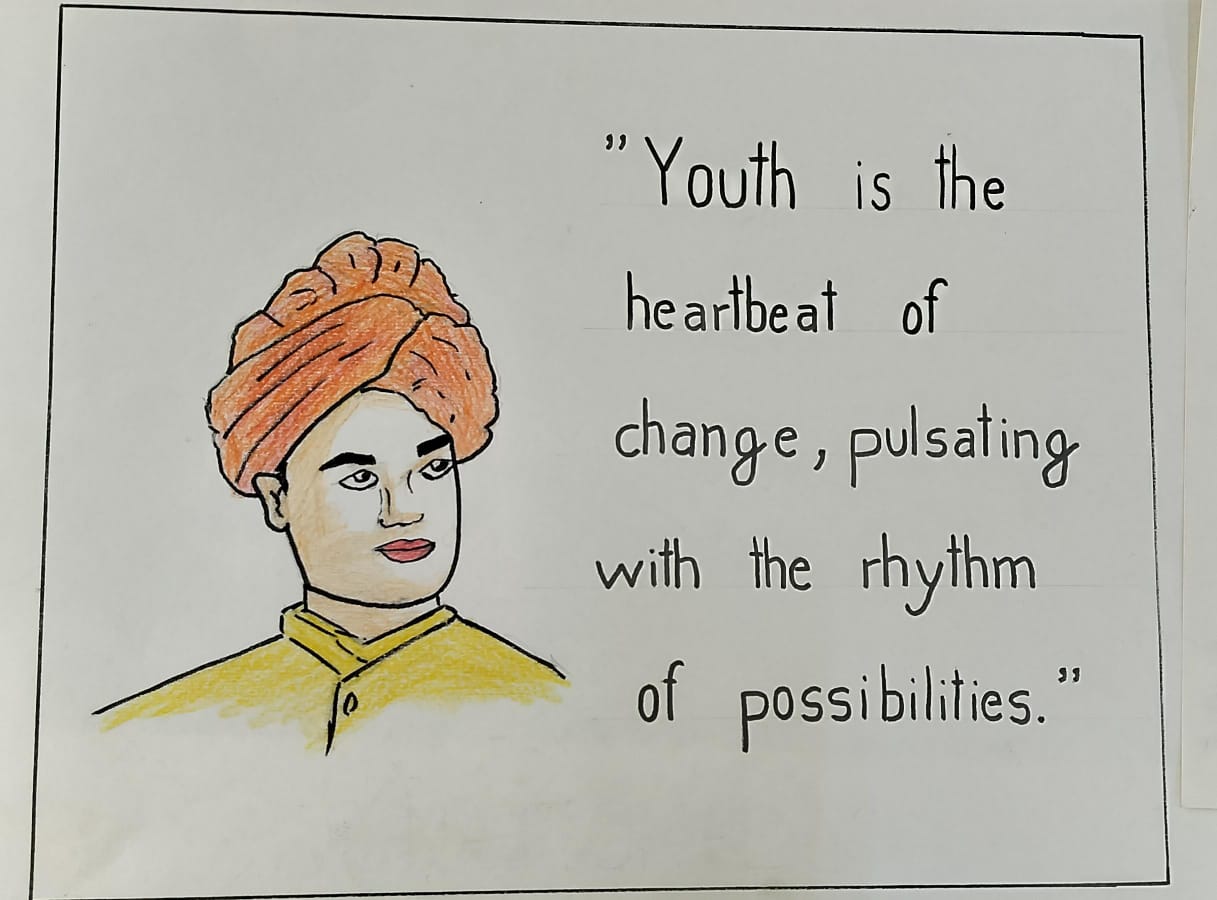 ”Youth is the
heartbeat of
change, pulsating
with the rhythm
of possibilities.”